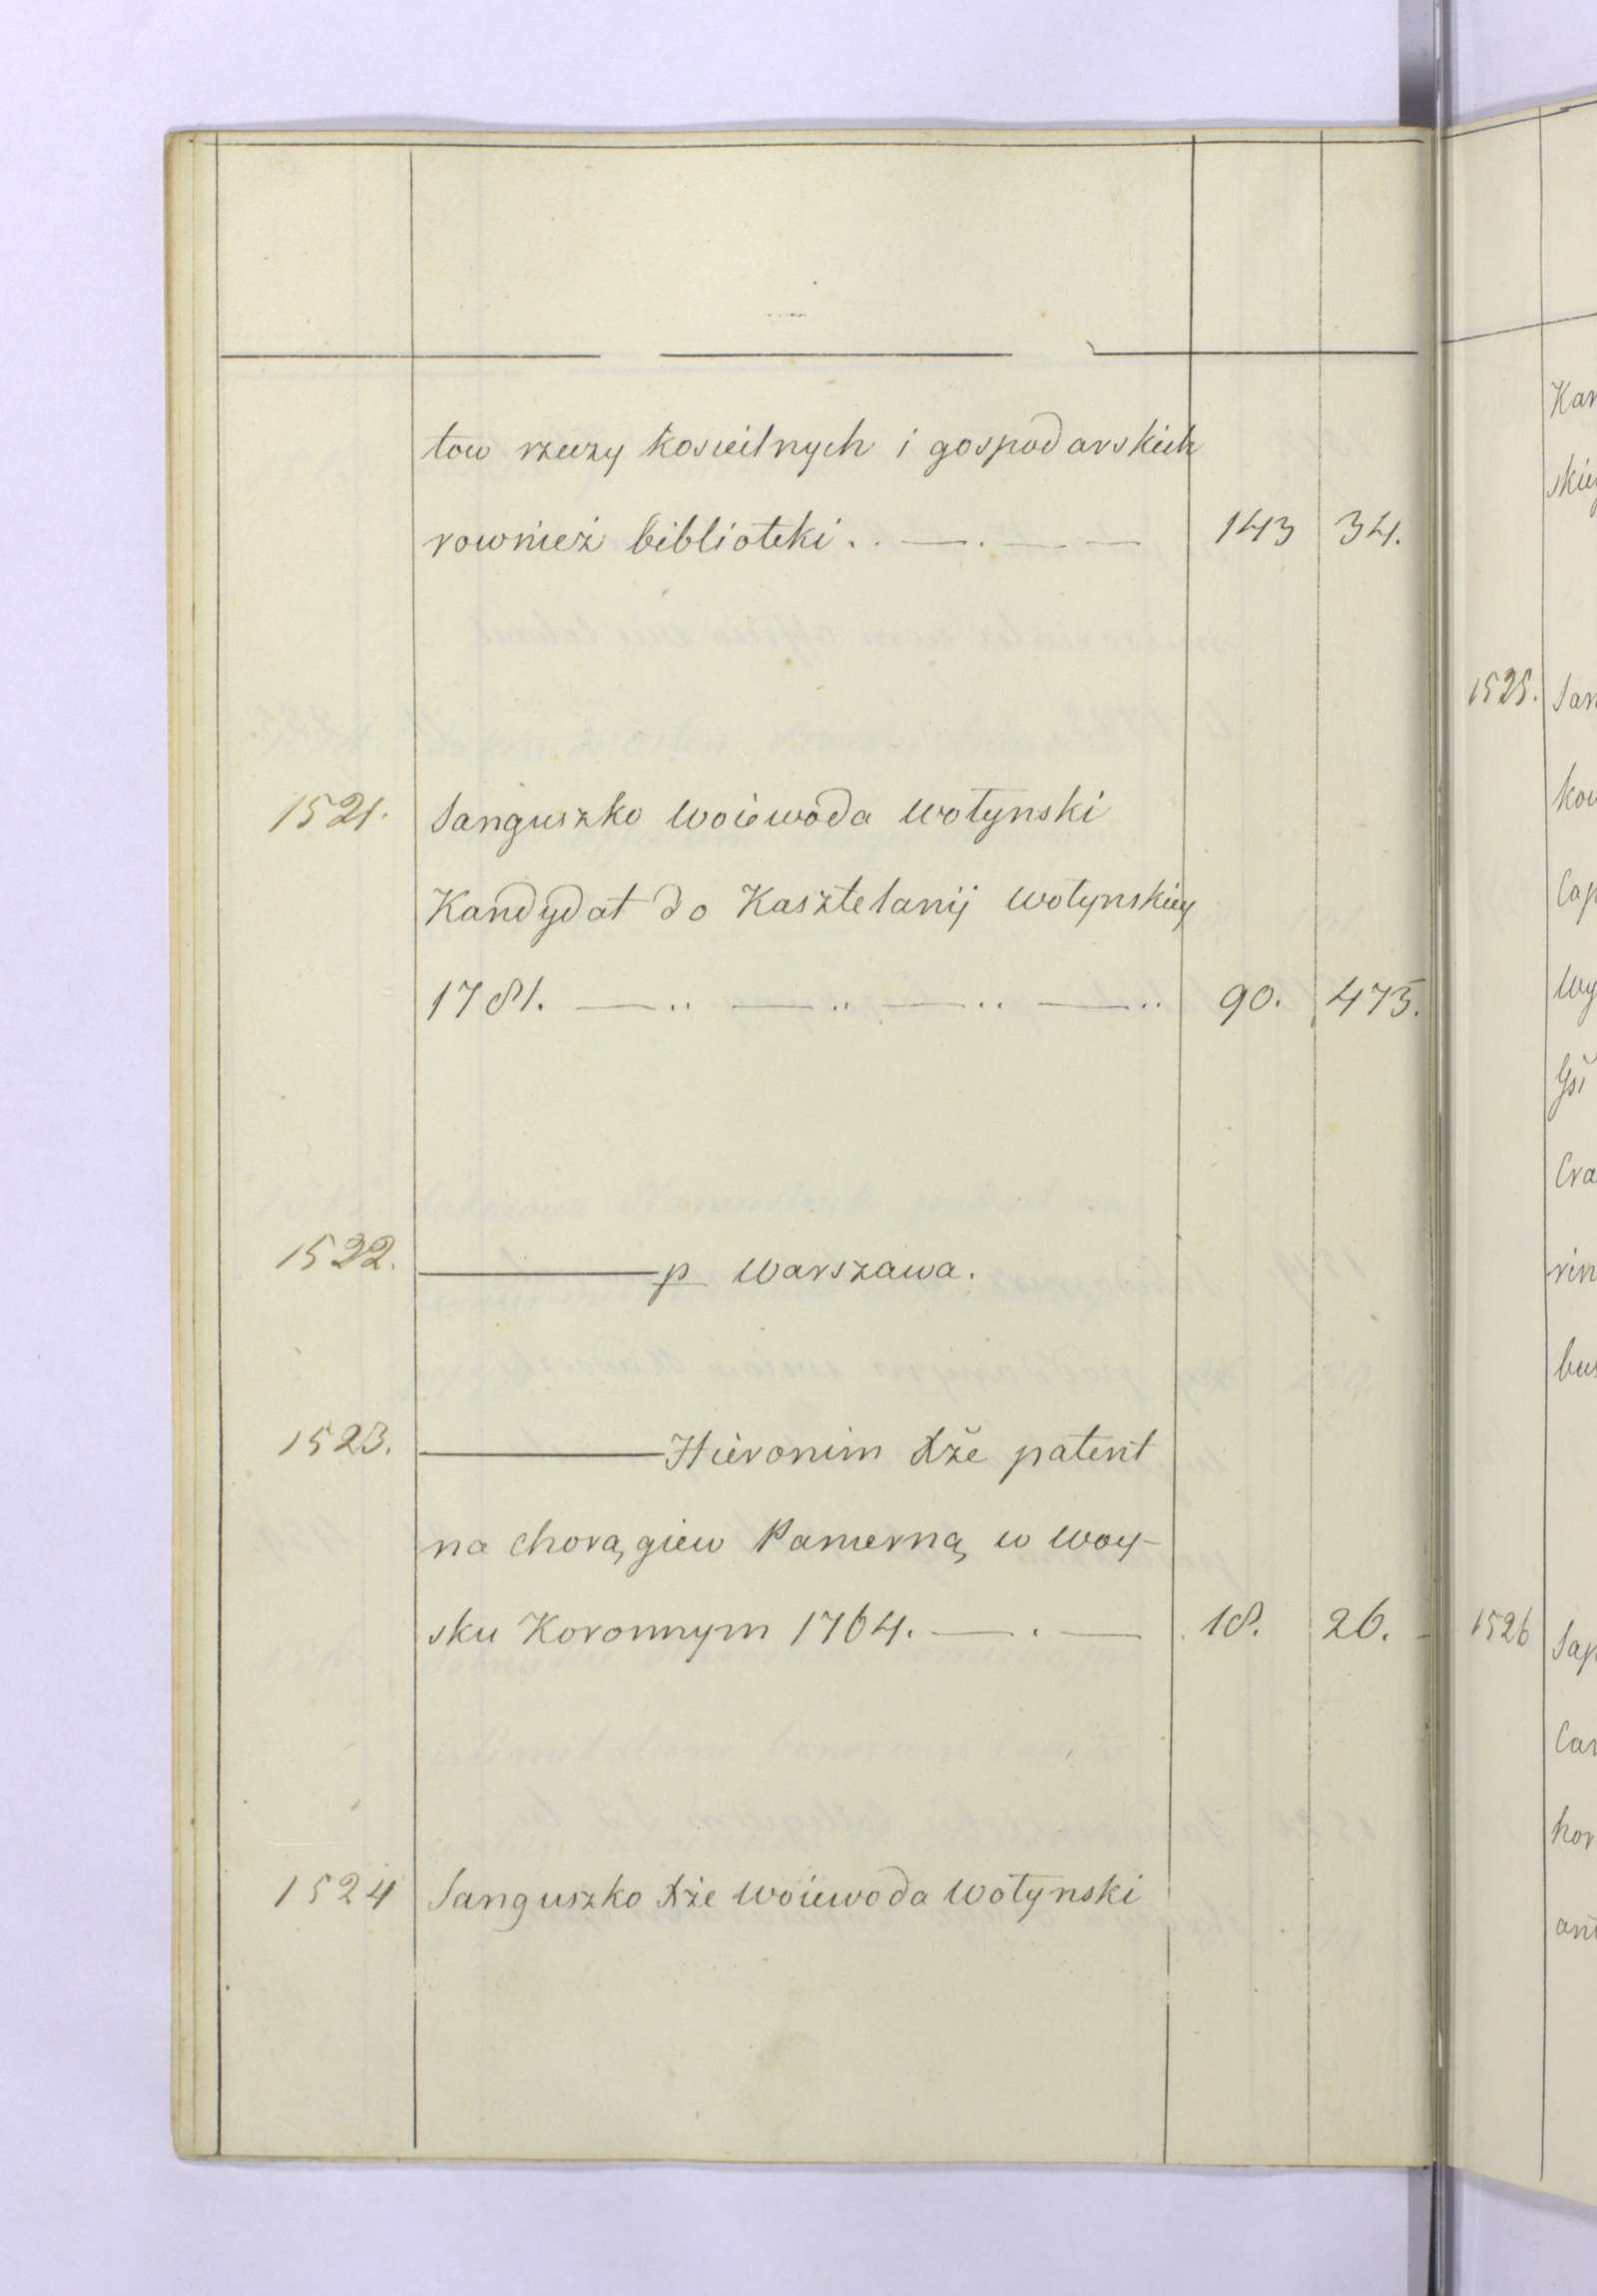 tow rzeczy koscielnych i gospodarskich
rownież biblioteki . . — . — — 143 34.
1521. Sanguszko Woiewoda Wołynski
Kandydat do Kasztelanij Wołynskiey
1781. — .. — .. — .. — .. 90. 475.
1522. ——— p Warszawa.
1523. ——— Hieronim Xże patent
na chorągiew Pancerną w Woy-
sku Koronnym 1764. — . — 18. 26.
1524 Sanguszko Xże Woiewoda Wołynski
Kan
skiey
1525. San
kow
Cap
Wy
Cra
rin
bus
1526 Sap
Can
hor
ant